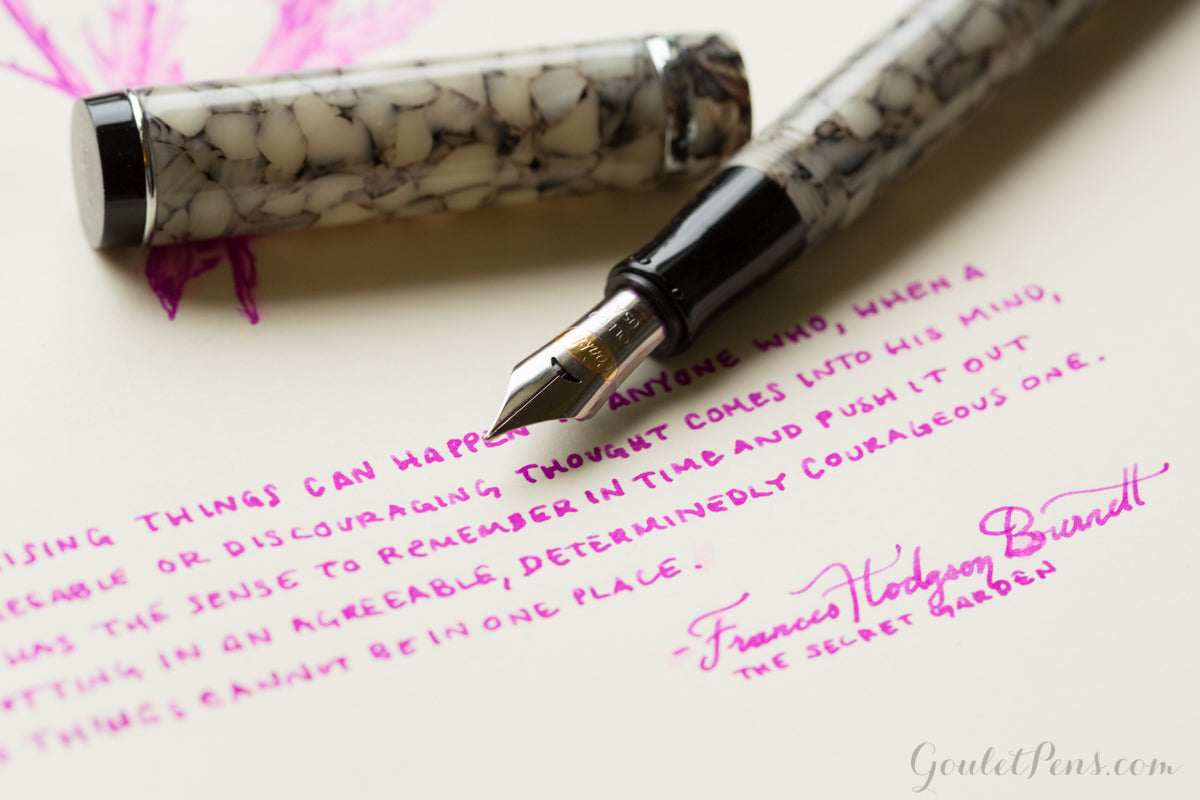 THINGS CAN HAPPEN ANYONE WHO, WHEN A
OR DISCOURAGING THOUGHT COMES INTO HIS MIND,
HAS THE SENSE TO REMEMBER IN TIME AND PUSH IT OUT
IN AN AGREEABLE, DETERMINEDLY COURAGEOUS ONE.
THINGS CANNOT BE IN ONE PLACE.
- Frances Hodgson Burnett
THE SECRET GARDEN
GouletPens.com